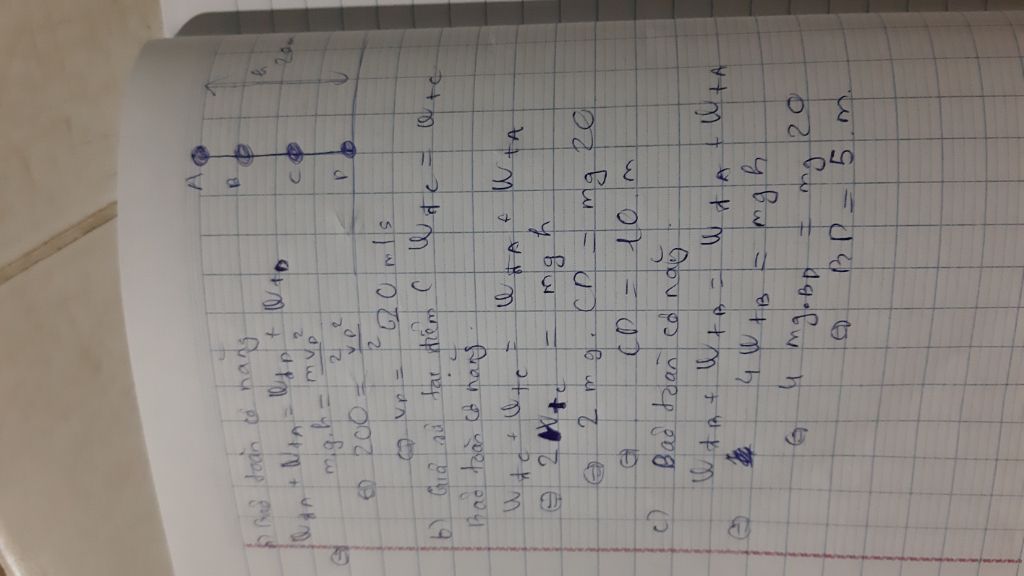 A
B
C
D
h
20m
a) Bảo toàn cơ năng
WđA + WtA = WđD + WtD
⇔ mg.h = mvD²/2
⇔ 200 = vD²/2
⇔ vD = 20 m/s
b) Giả sử tại điểm C WđC = WtC
Bảo toàn cơ năng
WđC + WtC = WđA + WtA
⇔ 2WtC = mgh
⇔ 2mg.CD = mg 20
⇔ CD = 10 m
c) Bảo toàn cơ năng
WđA + WtB = WđA + WtA
⇔ 4WtB = mgh
⇔ 4mg.BD = mg 20
⇔ BD = 5 m.